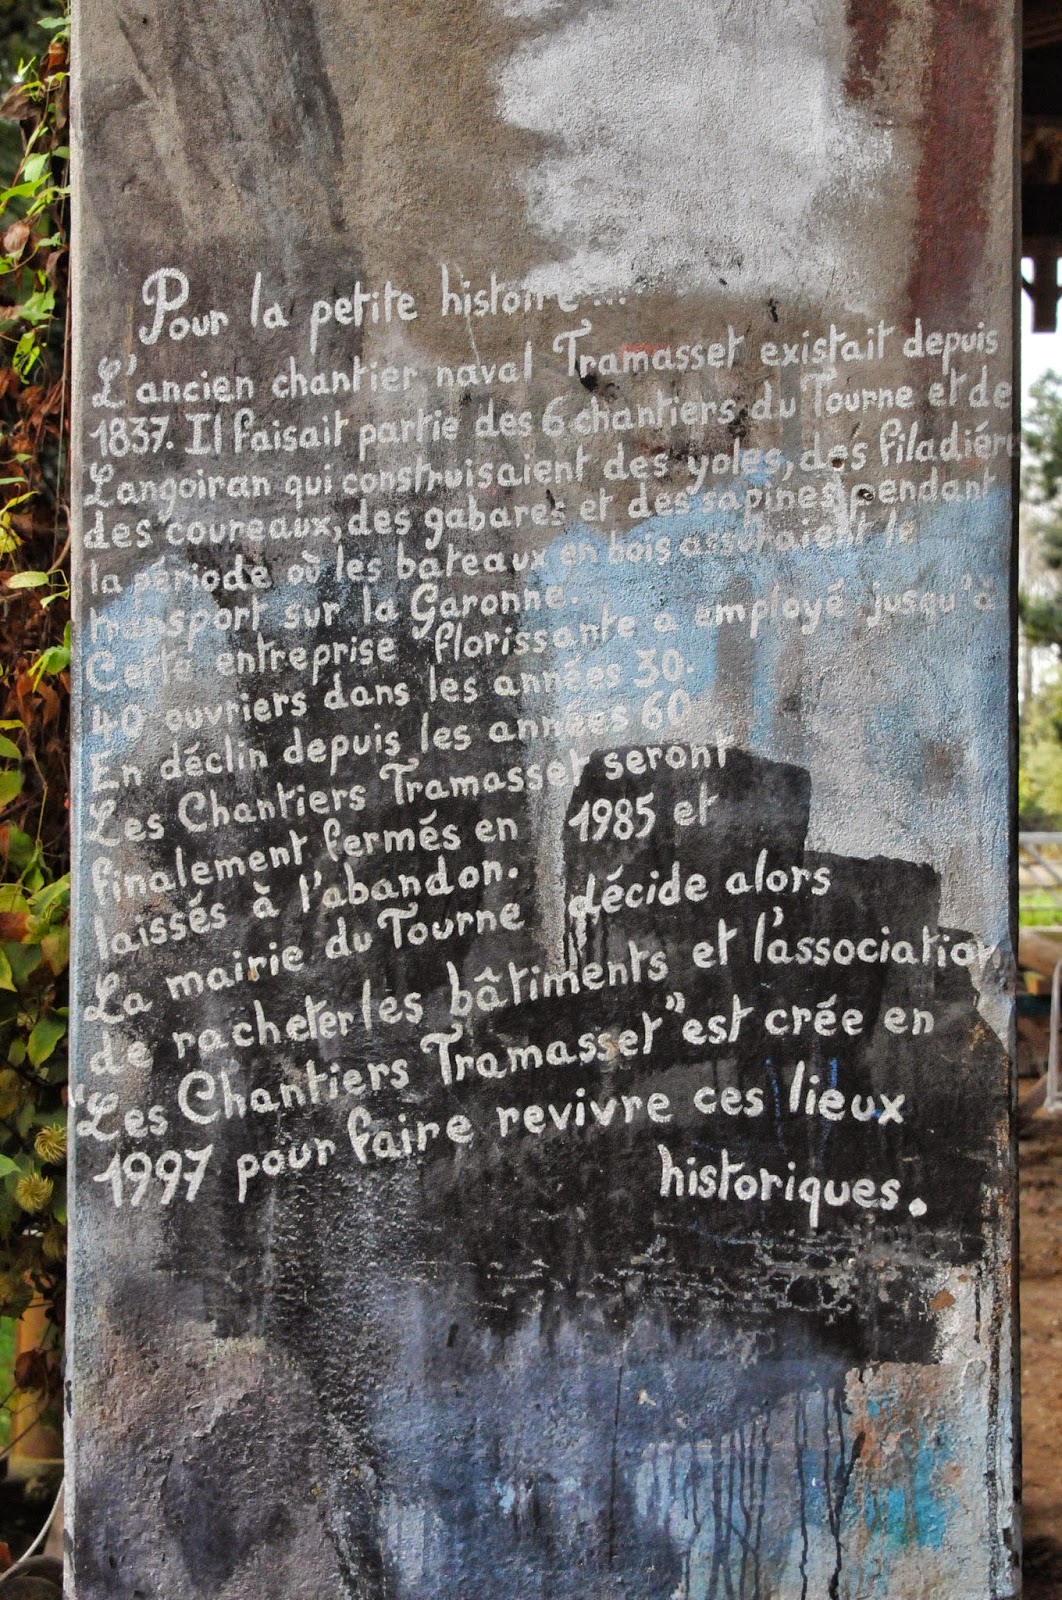 Pour la petite histoire...
L'ancien chantier naval Tramasset existait depuis
1837. Il faisait partie des 6 chantiers du Tourne et de
Langoiran qui construisaient des yoles, des filadière
des coureaux, des gabares et des sapines pendant
la période où les bateaux en bois assuraient le
transport sur la Garonne.
Cette entreprise florissante a employé jusqu'à
40 ouvriers dans les années 30.
En déclin depuis les années 60
Les Chantiers Tramasset seront
finalement fermés en 1985 et
laissés à l'abandon.
La mairie du Tourne décide alors
de racheter les bâtiments et l'association
"Les Chantiers Tramasset" est crée en
1997 pour faire revivre ces lieux
historiques.